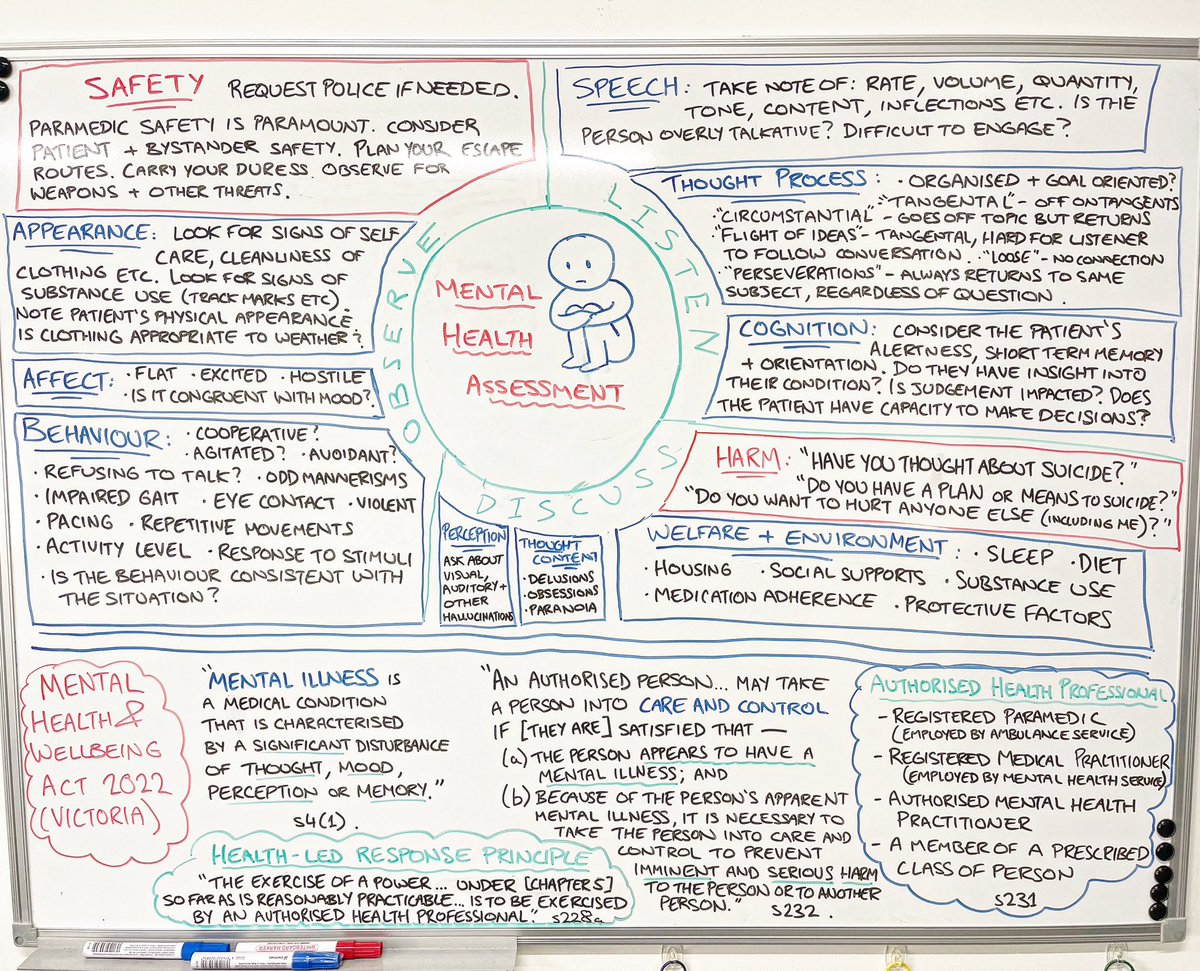 SAFETY REQUEST POLICE IF NEEDED.
PARAMEDIC SAFETY IS PARAMOUNT. CONSIDER
PATIENT + BYSTANDER SAFETY. PLAN YOUR ESCAPE
ROUTES. CARRY YOUR DURESS. OBSERVE FOR
WEAPONS + OTHER THREATS.
APPEARANCE: LOOK FOR SIGNS OF SELF
CARE, CLEANLINESS OF
CLOTHING ETC. LOOK FOR SIGNS OF
SUBSTANCE USE (TRACK MARKS ETC).
NOTE PATIENT'S PHYSICAL APPEARANCE.
IS CLOTHING APPROPRIATE TO WEATHER?
AFFECT: • FLAT • EXCITED • HOSTILE
• IS IT CONGRUENT WITH MOOD?
BEHAVIOUR: • COOPERATIVE?
• AGITATED? • AVOIDANT?
• REFUSING TO TALK? • ODD MANNERISMS
• IMPAIRED GAIT • EYE CONTACT • VIOLENT
• PACING • REPETITIVE MOVEMENTS
• ACTIVITY LEVEL • RESPONSE TO STIMULI
• IS THE BEHAVIOUR CONSISTENT WITH
THE SITUATION?
OBSERVE
LISTEN
DISCUSS
MENTAL
HEALTH
ASSESSMENT
SPEECH: TAKE NOTE OF: RATE, VOLUME, QUANTITY,
TONE, CONTENT, INFLECTIONS ETC. IS THE
PERSON OVERLY TALKATIVE? DIFFICULT TO ENGAGE?
THOUGHT PROCESS: • ORGANISED + GOAL ORIENTED?
• "TANGENTAL" - OFF ON TANGENTS
• "CIRCUMSTANTIAL" - GOES OFF TOPIC BUT RETURNS
• "FLIGHT OF IDEAS" - TANGENTAL, HARD FOR LISTENER
TO FOLLOW CONVERSATION. • "LOOSE" - NO CONNECTION
• "PERSEVERATIONS" - ALWAYS RETURNS TO SAME
SUBJECT, REGARDLESS OF QUESTION.
COGNITION: CONSIDER THE PATIENT'S
ALERTNESS, SHORT TERM MEMORY
+ ORIENTATION. DO THEY HAVE INSIGHT INTO
THEIR CONDITION? IS JUDGEMENT IMPACTED? DOES
THE PATIENT HAVE CAPACITY TO MAKE DECISIONS?
HARM: "HAVE YOU THOUGHT ABOUT SUICIDE?"
"DO YOU HAVE A PLAN OR MEANS TO SUICIDE?"
"DO YOU WANT TO HURT ANYONE ELSE (INCLUDING ME)?"
PERCEPTION
ASK ABOUT
VISUAL,
AUDITORY +
OTHER
HALLUCINATIONS
THOUGHT
CONTENT
• DELUSIONS
• OBSESSIONS
• PARANOIA
WELFARE + ENVIRONMENT: • SLEEP • DIET
• HOUSING • SOCIAL SUPPORTS • SUBSTANCE USE
• MEDICATION ADHERENCE • PROTECTIVE FACTORS
MENTAL
HEALTH &
WELLBEING
ACT 2022
(VICTORIA)
"MENTAL ILLNESS IS
A MEDICAL CONDITION
THAT IS CHARACTERISED
BY A SIGNIFICANT DISTURBANCE
OF THOUGHT, MOOD,
PERCEPTION OR MEMORY."
s4(1).
HEALTH-LED RESPONSE PRINCIPLE
"THE EXERCISE OF A POWER... UNDER [CHAPTER 5]
SO FAR AS IS REASONABLY PRACTICABLE... IS TO BE EXERCISED
BY AN AUTHORISED HEALTH PROFESSIONAL". s228a
"AN AUTHORISED PERSON... MAY TAKE
A PERSON INTO CARE AND CONTROL
IF [THEY ARE] SATISFIED THAT —
(a) THE PERSON APPEARS TO HAVE A
MENTAL ILLNESS; AND
(b) BECAUSE OF THE PERSON'S APPARENT
MENTAL ILLNESS, IT IS NECESSARY TO
TAKE THE PERSON INTO CARE AND
CONTROL TO PREVENT
IMMINENT AND SERIOUS HARM
TO THE PERSON OR TO ANOTHER
PERSON." s232.
AUTHORISED HEALTH PROFESSIONAL
- REGISTERED PARAMEDIC
(EMPLOYED BY AMBULANCE SERVICE)
- REGISTERED MEDICAL PRACTITIONER
(EMPLOYED BY MENTAL HEALTH SERVICE)
- AUTHORISED MENTAL HEALTH
PRACTITIONER
- A MEMBER OF A PRESCRIBED
CLASS OF PERSON
s231
WHITEBOARD MARKER